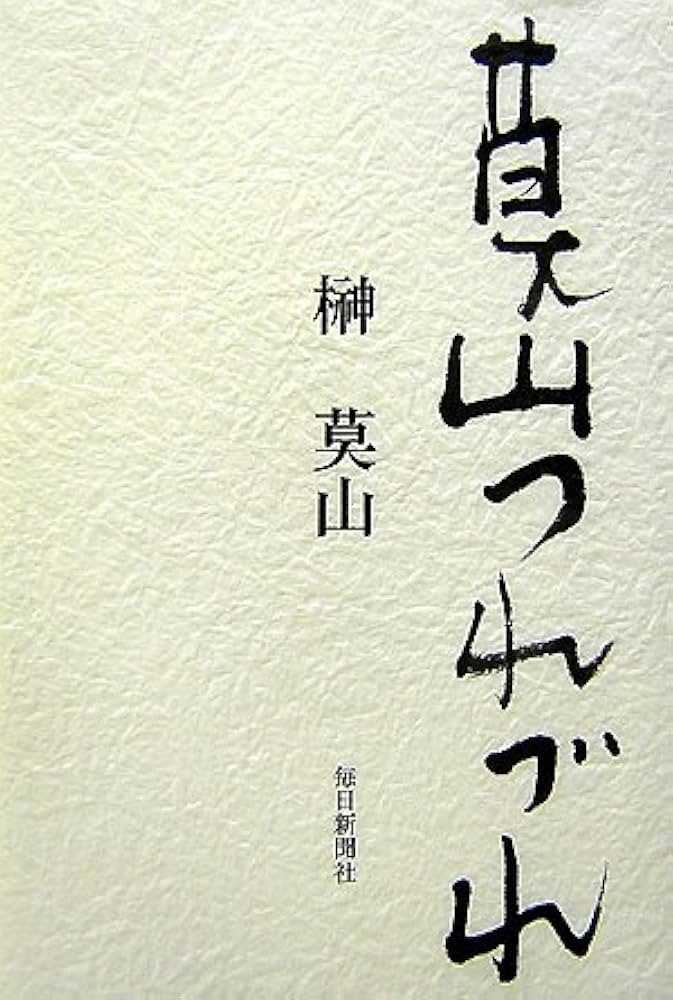 莫山つれづれ
榊 莫山
毎日新聞社